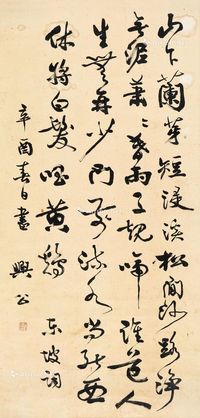 山下蘭芽短浸溪松間沙路淨
無泥蕭〻暮雨子規啼誰道人
生無再少門前流水尚能西
休將白髮唱黃鷄 東坡詞
辛酉春日書 興公